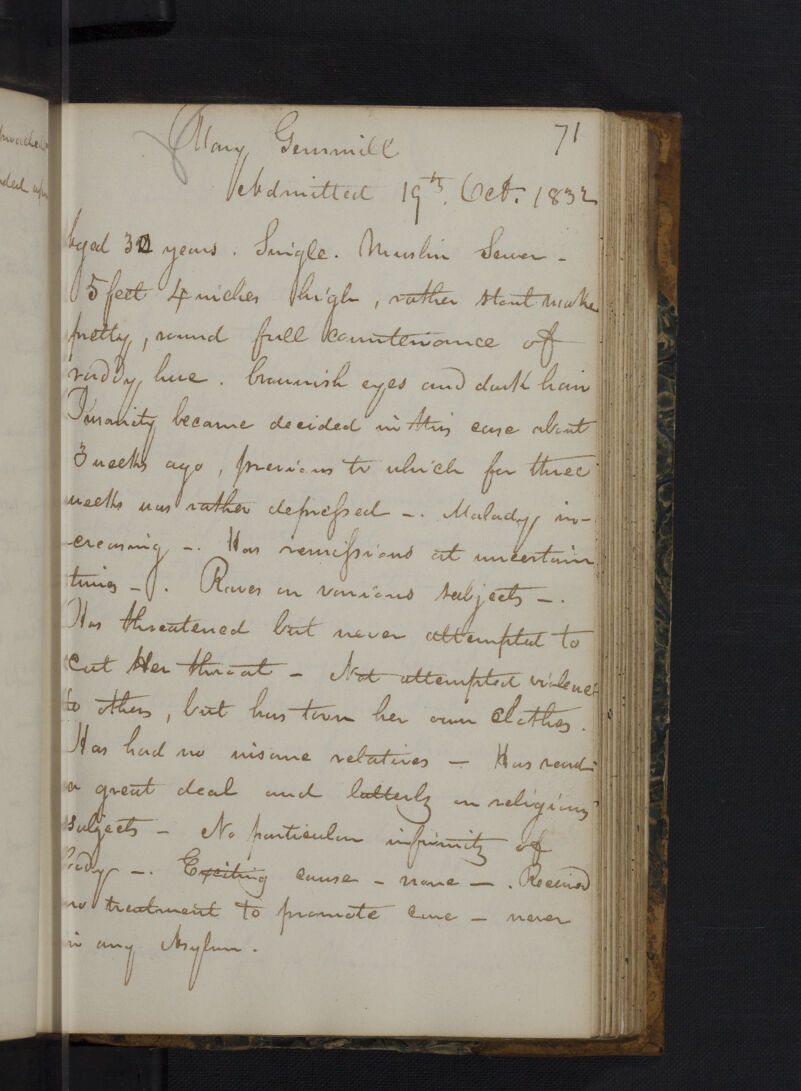 71
Mary Gemmill
Admitted 19th. Oct. 1832
Aged 32 years. Single. Muslin Sewer -
5 feet 4 inches high, rather stout make
pretty, round full countenance of
ruddy hue. brownish eyes and dark hair
Insanity became decided in this case about
3 weeks ago, previous to which for three
weeks was rather depressed -. Malady in-
creasing -. Has remissions at uncertain
times -. Raves on various subjects -.
Has threatened but never attempted to
cut Her throat - Not attempted violence
to others, but has torn her own clothes.
Has had no insane relatives - Has read
a great deal and latterly on religious
subjects - No particular infirmity of
body -. Exciting cause - none -. Received
no treatment to promote cure - never
in any Asylum.